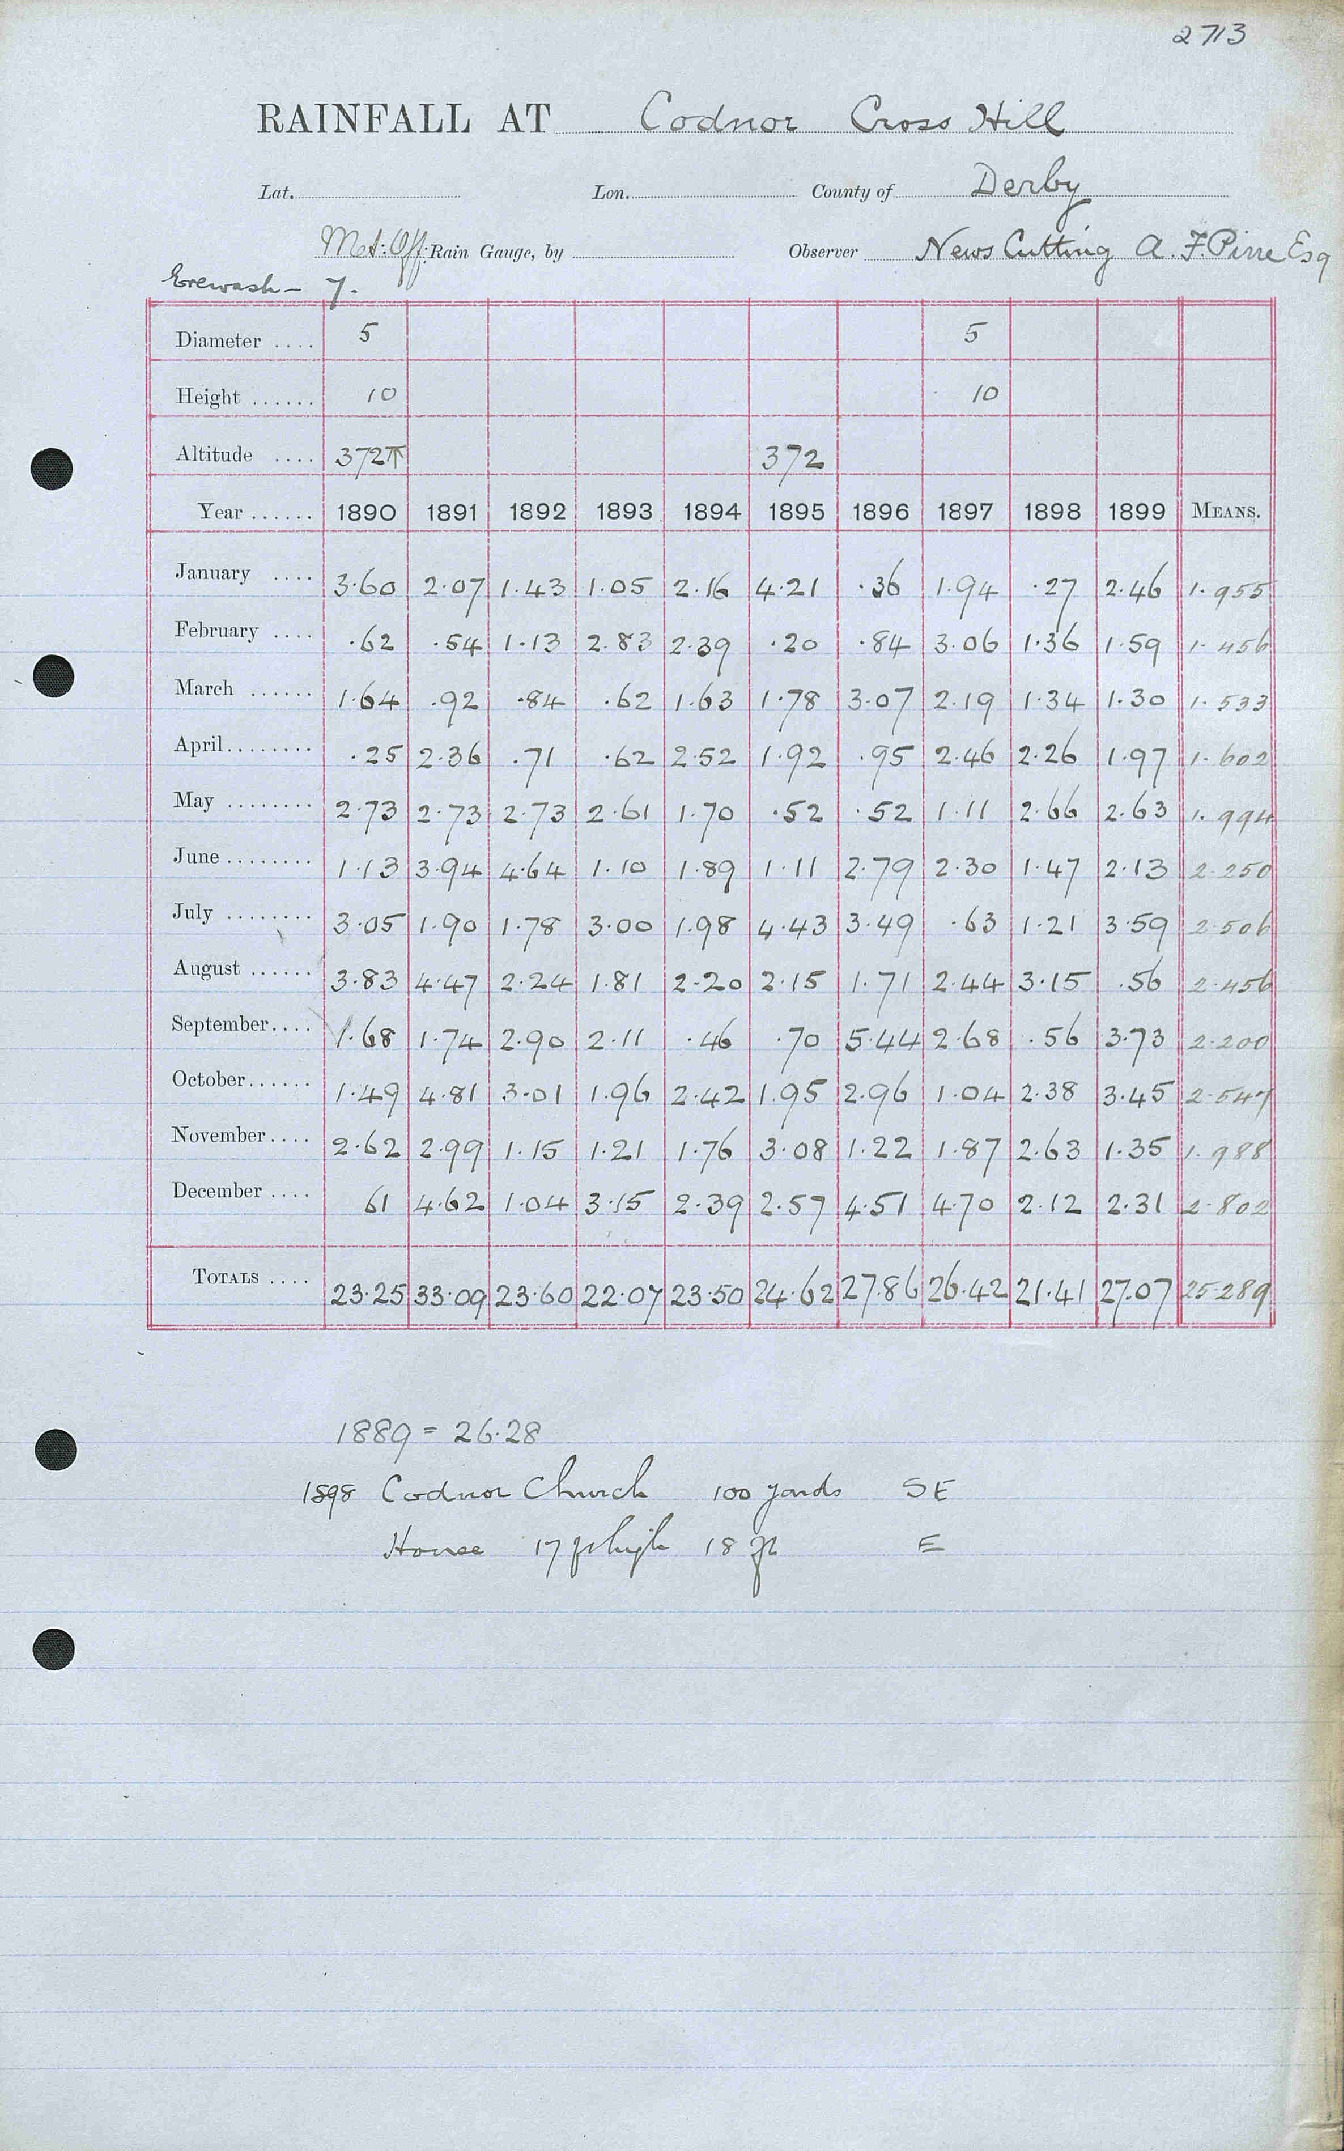 2713
RAINFALL AT Codnor Cross Hill
Lat. Lon. County of Derby
Met: Off: Rain Gauge, by Observer News Cutting A. F. Pirre Esq
Erewash - 7.
Diameter .... 5 5
Height ...... 10 10
Altitude .... 372 T 372
Year ...... 1890 1891 1892 1893 1894 1895 1896 1897 1898 1899 MEANS.
January .... 3.60 2.07 1.43 1.05 2.16 4.21 .36 1.94 .27 2.46 1.955
February .... .62 .54 1.13 2.83 2.39 .20 .84 3.06 1.36 1.59 1.456
March ...... 1.64 .92 .84 .62 1.63 1.78 3.07 2.19 1.34 1.30 1.533
April ........ .25 2.36 .71 .62 2.52 1.92 .95 2.46 2.26 1.97 1.602
May ........ 2.73 2.73 2.73 2.61 1.70 .52 .52 1.11 2.66 2.63 1.994
June ........ 1.13 3.94 4.64 1.10 1.89 1.11 2.79 2.30 1.47 2.13 2.250
July ........ 3.05 1.90 1.78 3.00 1.98 4.43 3.49 .63 1.21 3.59 2.506
August ...... 3.83 4.47 2.24 1.81 2.20 2.15 1.71 2.44 3.15 .56 2.456
September .... 1.68 1.74 2.90 2.11 .46 .70 5.44 2.68 .56 3.73 2.200
October ...... 1.49 4.81 3.01 1.96 2.42 1.95 2.96 1.04 2.38 3.45 2.547
November .... 2.62 2.99 1.15 1.21 1.76 3.08 1.22 1.87 2.63 1.35 1.988
December .... 61 4.62 1.04 3.15 2.39 2.57 4.51 4.70 2.12 2.31 2.802
TOTALS .... 23.25 33.09 23.60 22.07 23.50 24.62 27.86 26.42 21.41 27.07 25.289
1889 = 26.28
1898 Codnor Church 100 yards SE
House 17 ft high 18 ft E